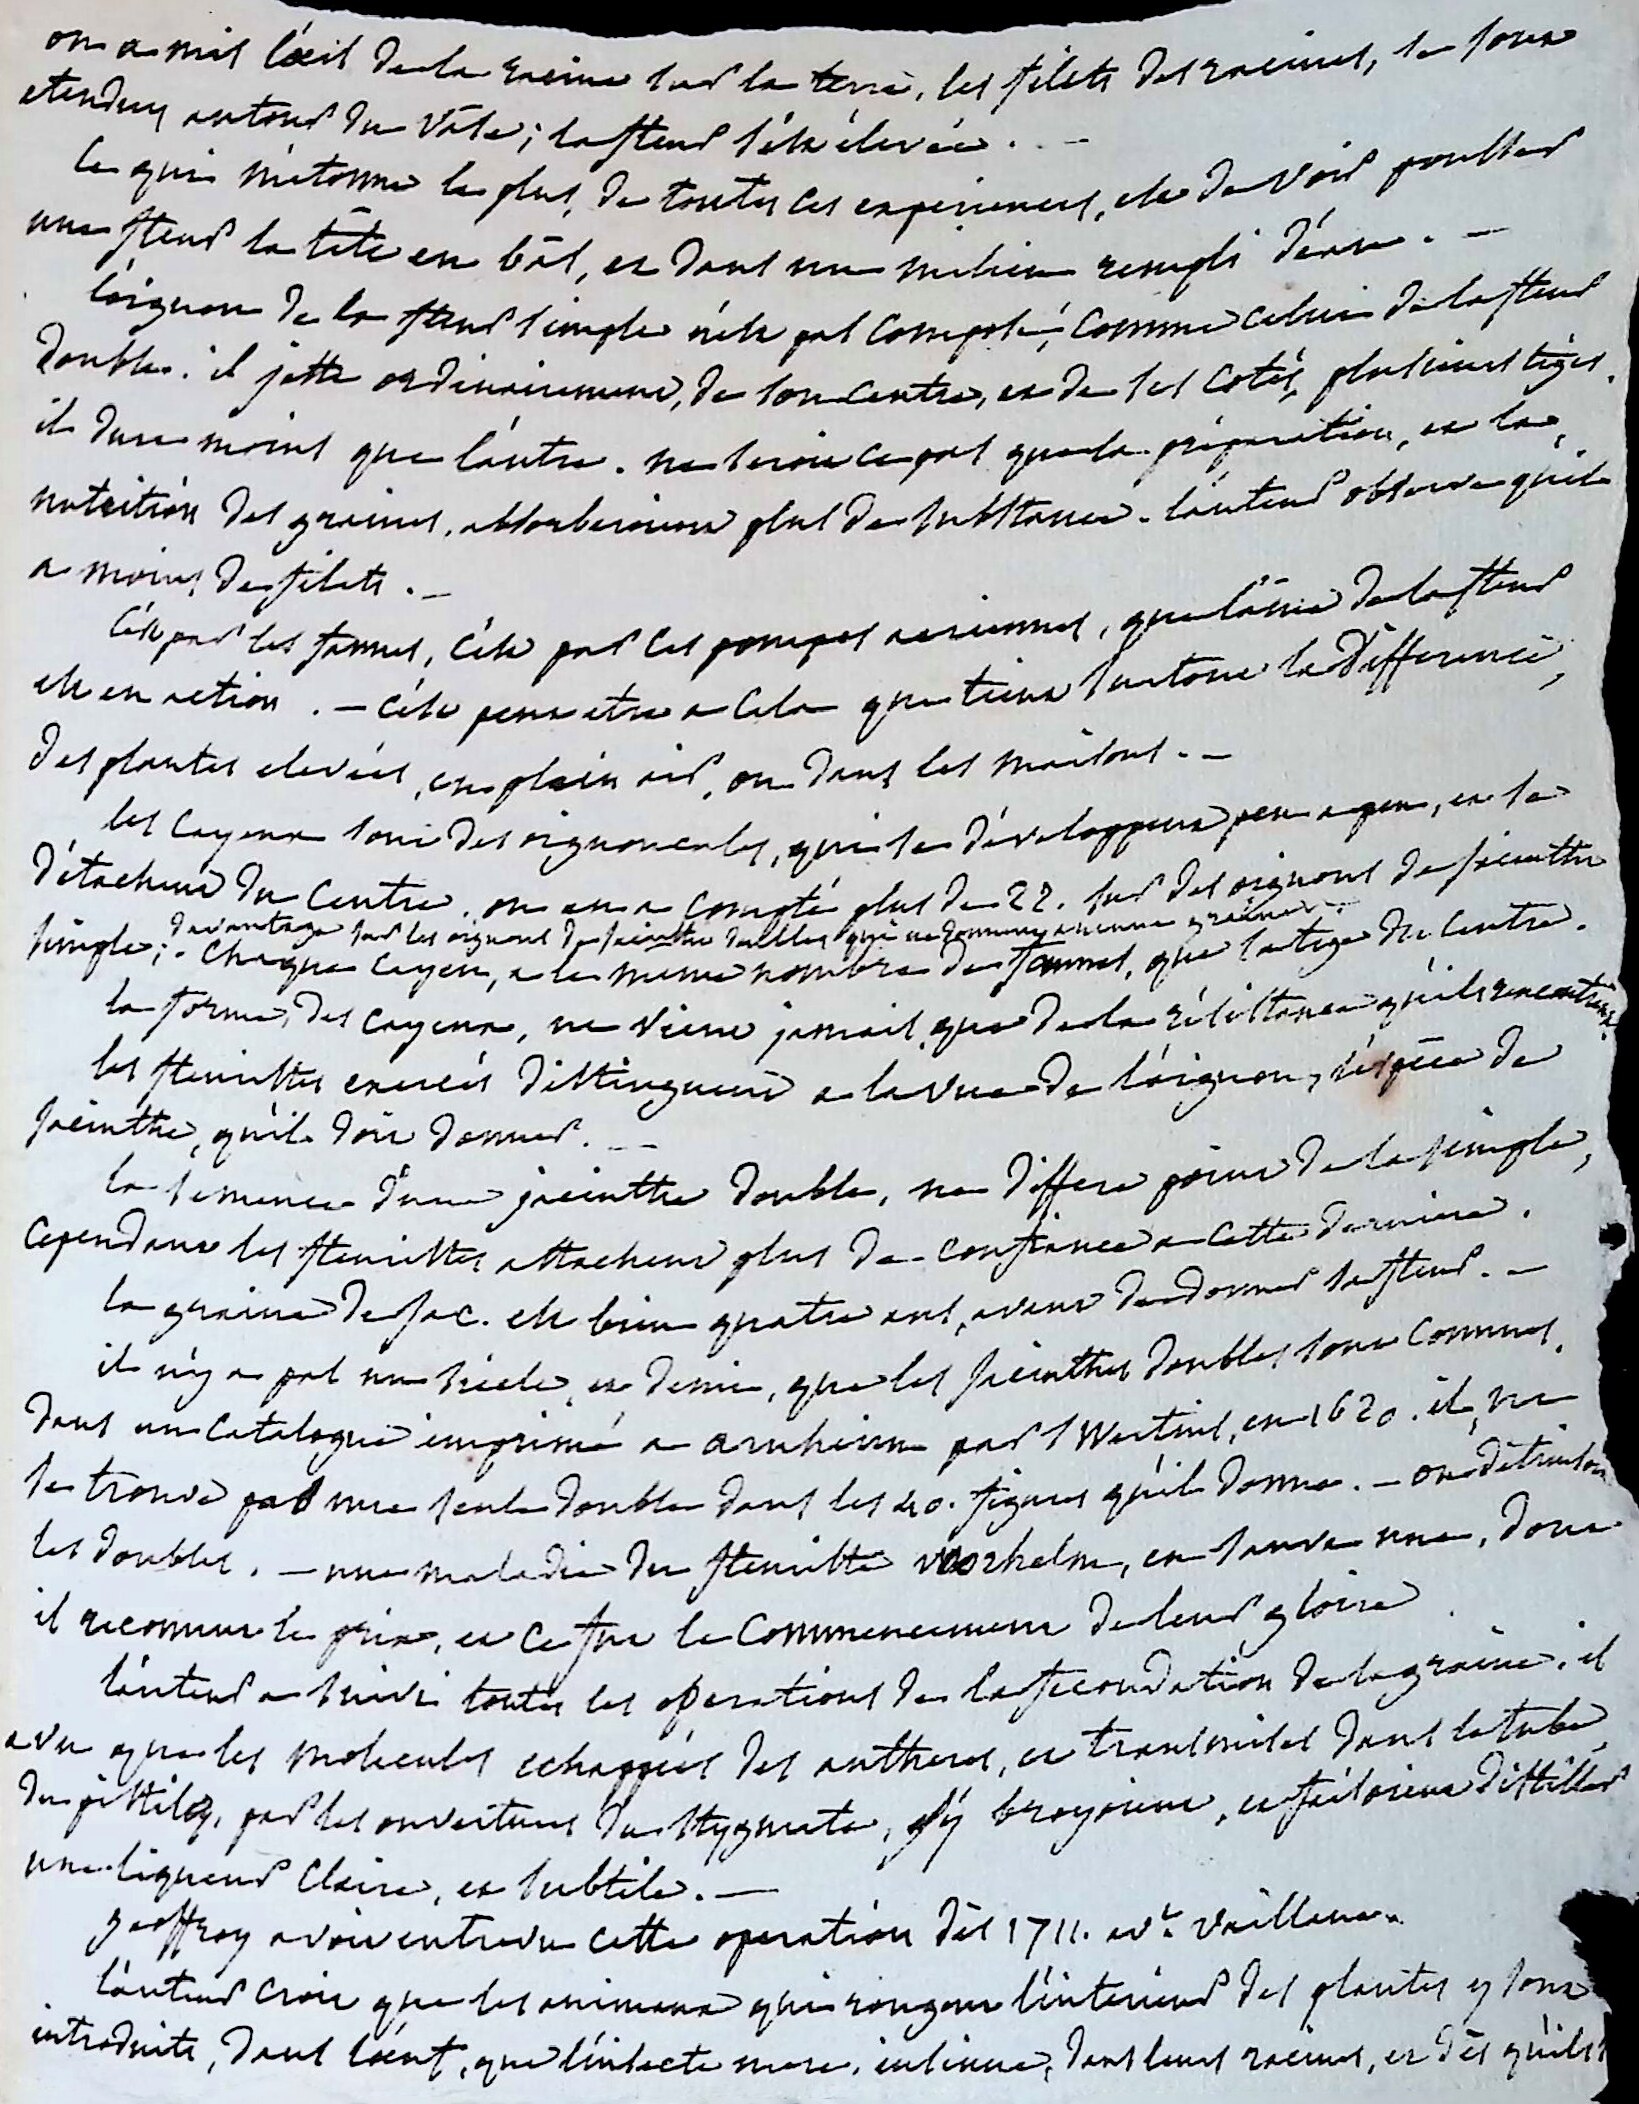 on a mis l'œil de la racine sur la terre, les filets des racines, se sont
etendus autour du vase; la fleur s'est élevée. —
Ce qui m'etonne le plus, de toutes ces experiences, est de voir pousser
une fleur la tête en bas, et dans un milieu rempli d'eau. —
l'oignon de la fleur simple n'est pas composé, comme celui de la fleur
double. il jette ordinairement, de son centre, et de ses cotés, plusieurs tiges.
il dure moins que l'autre. ne seroit ce pas que la préparation, et la
nutrition des graines, absorberoient plus de substance. l'auteur observe qu'il
a moins de filets. —
C'est par les fannes, c'est par ces pompes aeriennes, que l'ame de la fleur
est en action. — c'est peut etre a cela que tient surtout la difference,
des plantes elevées, en plein air, ou dans les maisons. —
les cayeux sont des oignoncules, qui se développent peu a peu, et se
détachent du centre. on en a compté plus de 22. sur des oignons de jacinthe
davantage sur les oignons de jacinthe doubles qui ne donnent aucune graine.
simple; chaque cayeu, a le meme nombre de fannes, que la tige du centre.
la forme, des cayeux, ne vient jamais que de la résistance qu'ils rencontrent.
les fleuristes exercés distinguent a la vue de l'oignon, l'espèce de
jacinthe, qu'il doit donner. —
la semence d'une jacinthe double, ne differe point de la simple,
cependant les fleuristes attachent plus de confiance a cette derniere.
la graine de jac. est bien quatre ans, avant de donner sa fleur. —
il n'y a pas un siècle, et demi, que les jacinthes doubles sont connues.
dans un catalogue imprimé a arnheim par Swertius, en 1620. il ne
se trouve pas une seule double dans les 40. figures qu'il donne. — on détruisoit
les doubles. — une maladie du fleuriste voorhelm, en sauva une, dont
il reconnut le prix, et ce fut le commencement de leur gloire
l'auteur a suivi toutes les operations de la fecondation de la graine. il
a vu que les molecules echappées des antheres, et transmises dans le tube,
du pistile, par les ouvertures du stygmate, s'y broyoient, et faisoient distiller
une liqueur claire, et subtile. —
geoffroy avoit entrevu cette operation dès 1711. avt. vaillant.
l'auteur croit que les animaux qui rongent l'interieur des plantes y sont
introduits, dans l'œuf, que l'insecte mere, insinue, dans leurs racines, et dès qu'ils